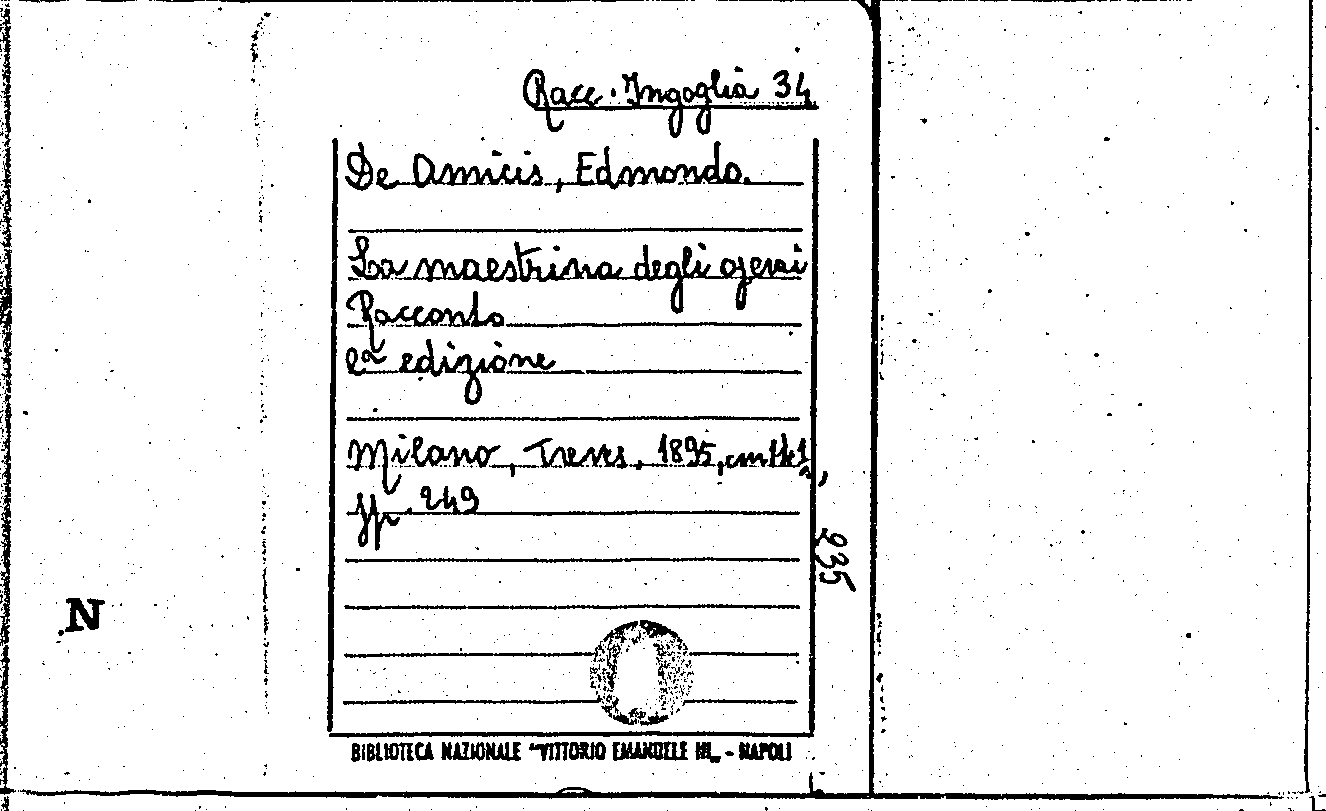 Racc. Ingoglia 34
De Amicis, Edmondo.
La maestrina degli operai
Racconto
2ª edizione
Milano, Treves, 1895,
pp. 249
235
N
BIBLIOTECA NAZIONALE "VITTORIO EMANUELE III„ - NAPOLI